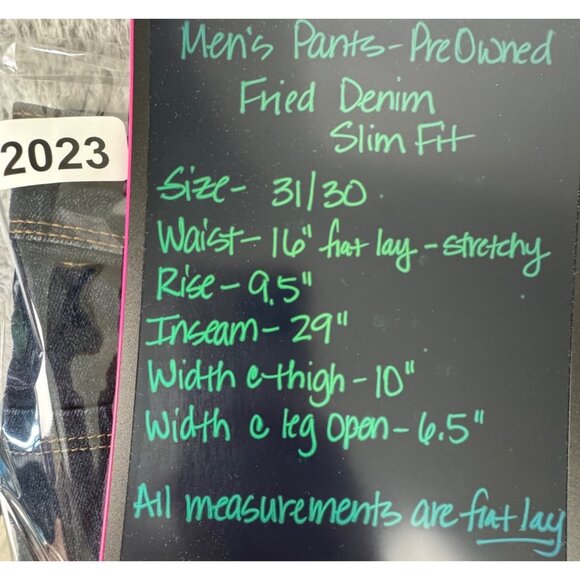 Men's Pants - PreOwned
Fried Denim
Slim Fit
2023
Size - 31/30
Waist - 16" flat lay - stretchy
Rise - 9.5"
Inseam - 29"
Width @ thigh - 10"
Width @ leg open - 6.5"
All measurements are flat lay